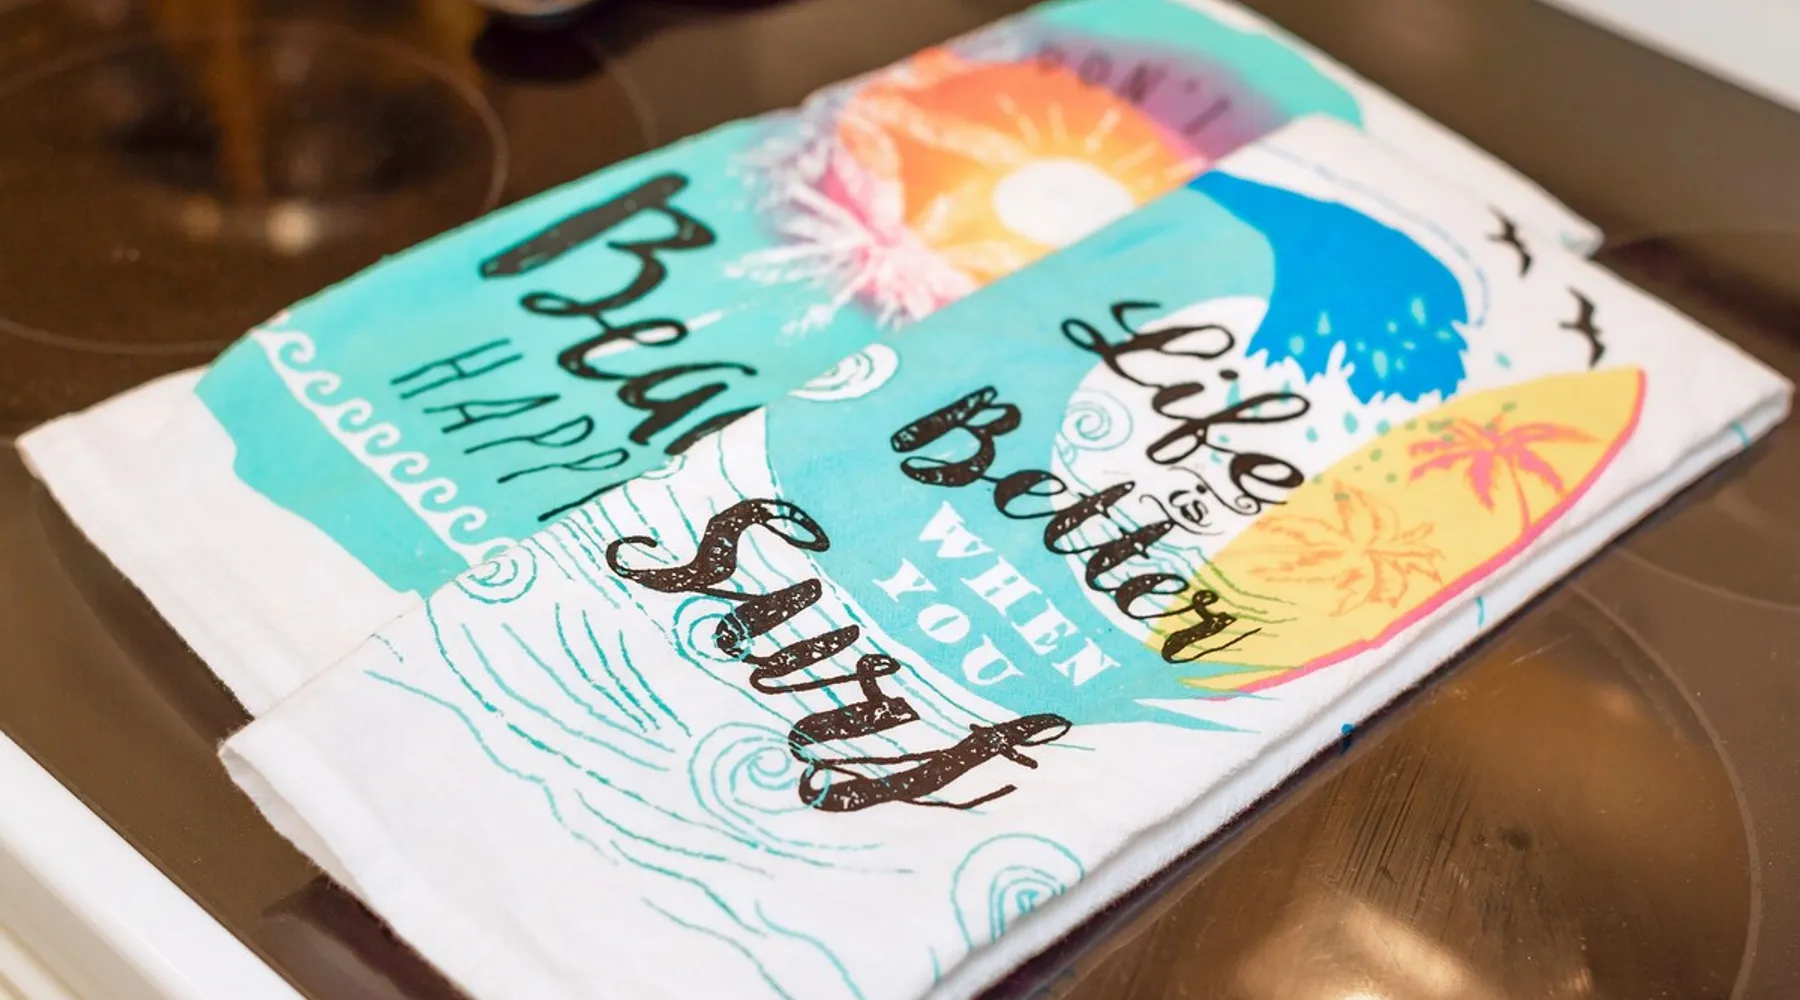 DON'T
HAPP
Life
is
Better
WHEN
YOU
Surf